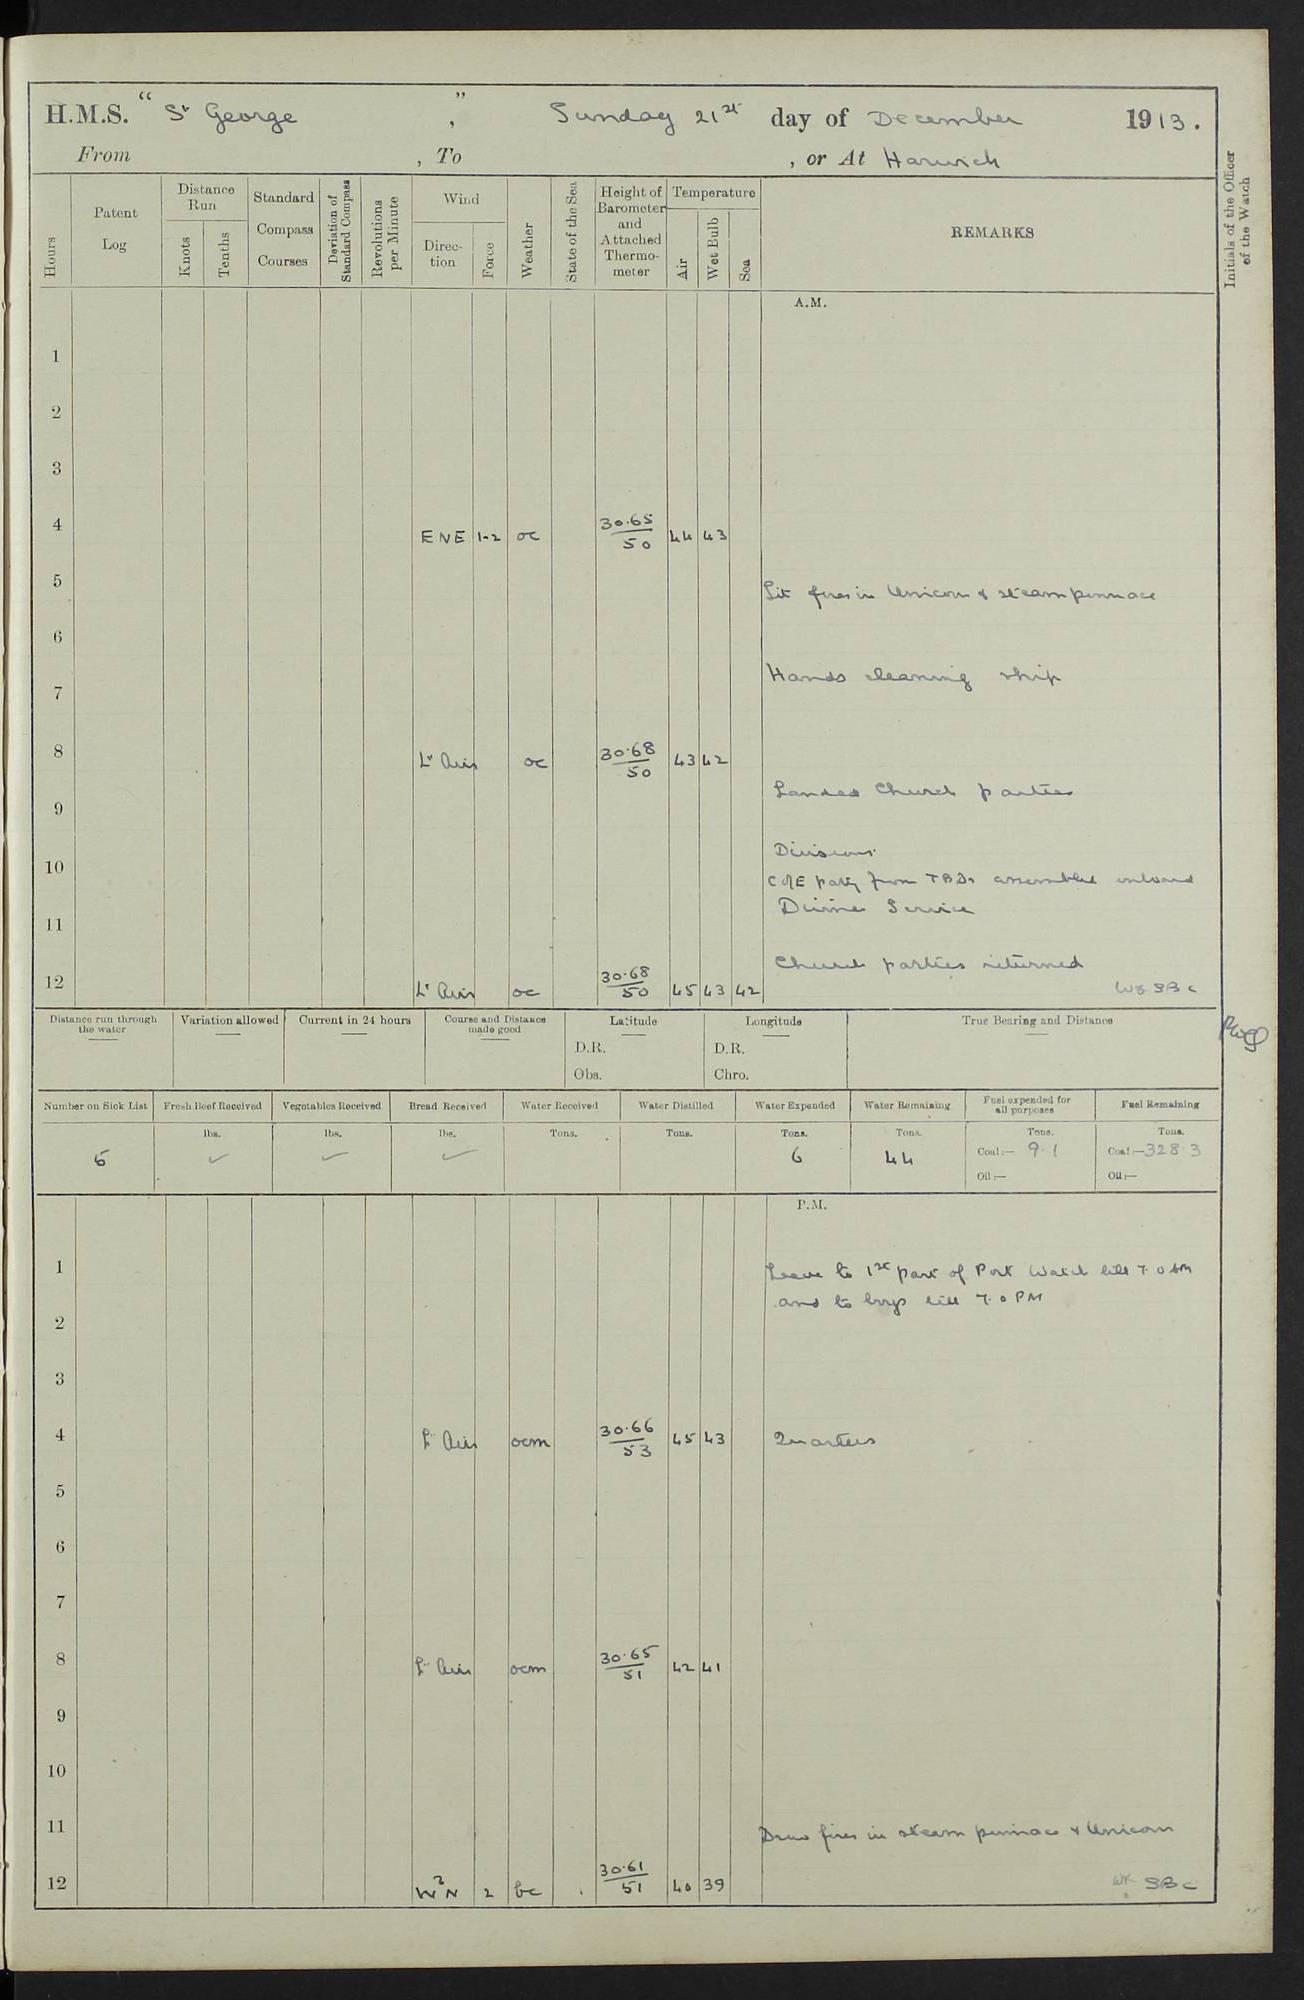 H.M.S. “ St George ” , Sunday 21st day of December 1913.
From , To , or At Harwich
Hours
Patent Log
Distance Run
Knots
Tenths
Standard Compass Courses
Deviation of Standard Compass
Revolutions per Minute
Wind
Direction
Force
Weather
State of the Sea
Height of Barometer and Attached Thermometer
Temperature
Air
Wet Bulb
Sea
REMARKS
Initials of the Officer of the Watch
A.M.
1
2
3
4 ENE 1-2 oc 30.65/50 44 43
5
Lit fires in Unicorn & steam pinnace
6
Hands cleaning ship
7
8 Lt Airs oc 30.68/50 43 42
Landed Church parties
9
Divisions.
10
C of E party from TBDs assembled onboard
Divine Service
11
Church parties returned
12 Lt Airs oc 30.68/50 45 43 42 SBC
Distance run through the water
Variation allowed
Current in 24 hours
Course and Distance made good
Latitude
D.R.
Obs.
Longitude
D.R.
Chro.
True Bearing and Distance
Number on Sick List
Fresh Beef Received
Vegetables Received
Bread Received
Water Received
Water Distilled
Water Expended
Water Remaining
Fuel expended for all purposes
Fuel Remaining
lbs. lbs. lbs. Tons. Tons. Tons. Tons. Tons. Tons.
5 ✓ ✓ ✓ 6 44 Coal:— 9.1 Coal:— 328.3
Oil:— Oil:—
P.M.
1 Leave to 1st part of Port Watch till 7.0 AM
and to boys till 7.0 PM
2
3
4 Lt Airs ocm 30.66/53 45 43 Quarters
5
6
7
8 Lt Airs ocm 30.65/51 42 41
9
10
11 Drew fires in steam pinnace & Unicorn
12 W2N 2 bc 30.61/51 40 39 SBC